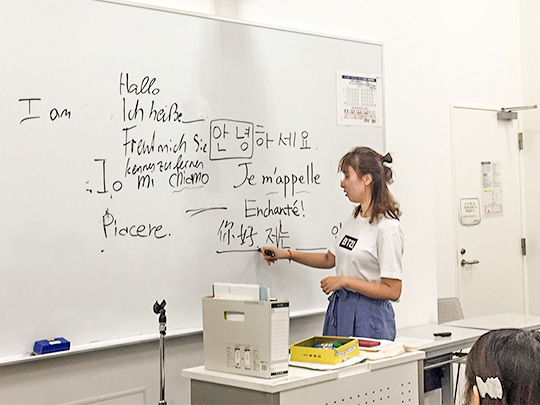 Hallo
I am
Ich heiße
Freut mich Sie
kennenzulernen
안녕하세요.
Io mi chiamo
Je m'appelle
Enchanté!
Piacere.
你好 저는
BTS